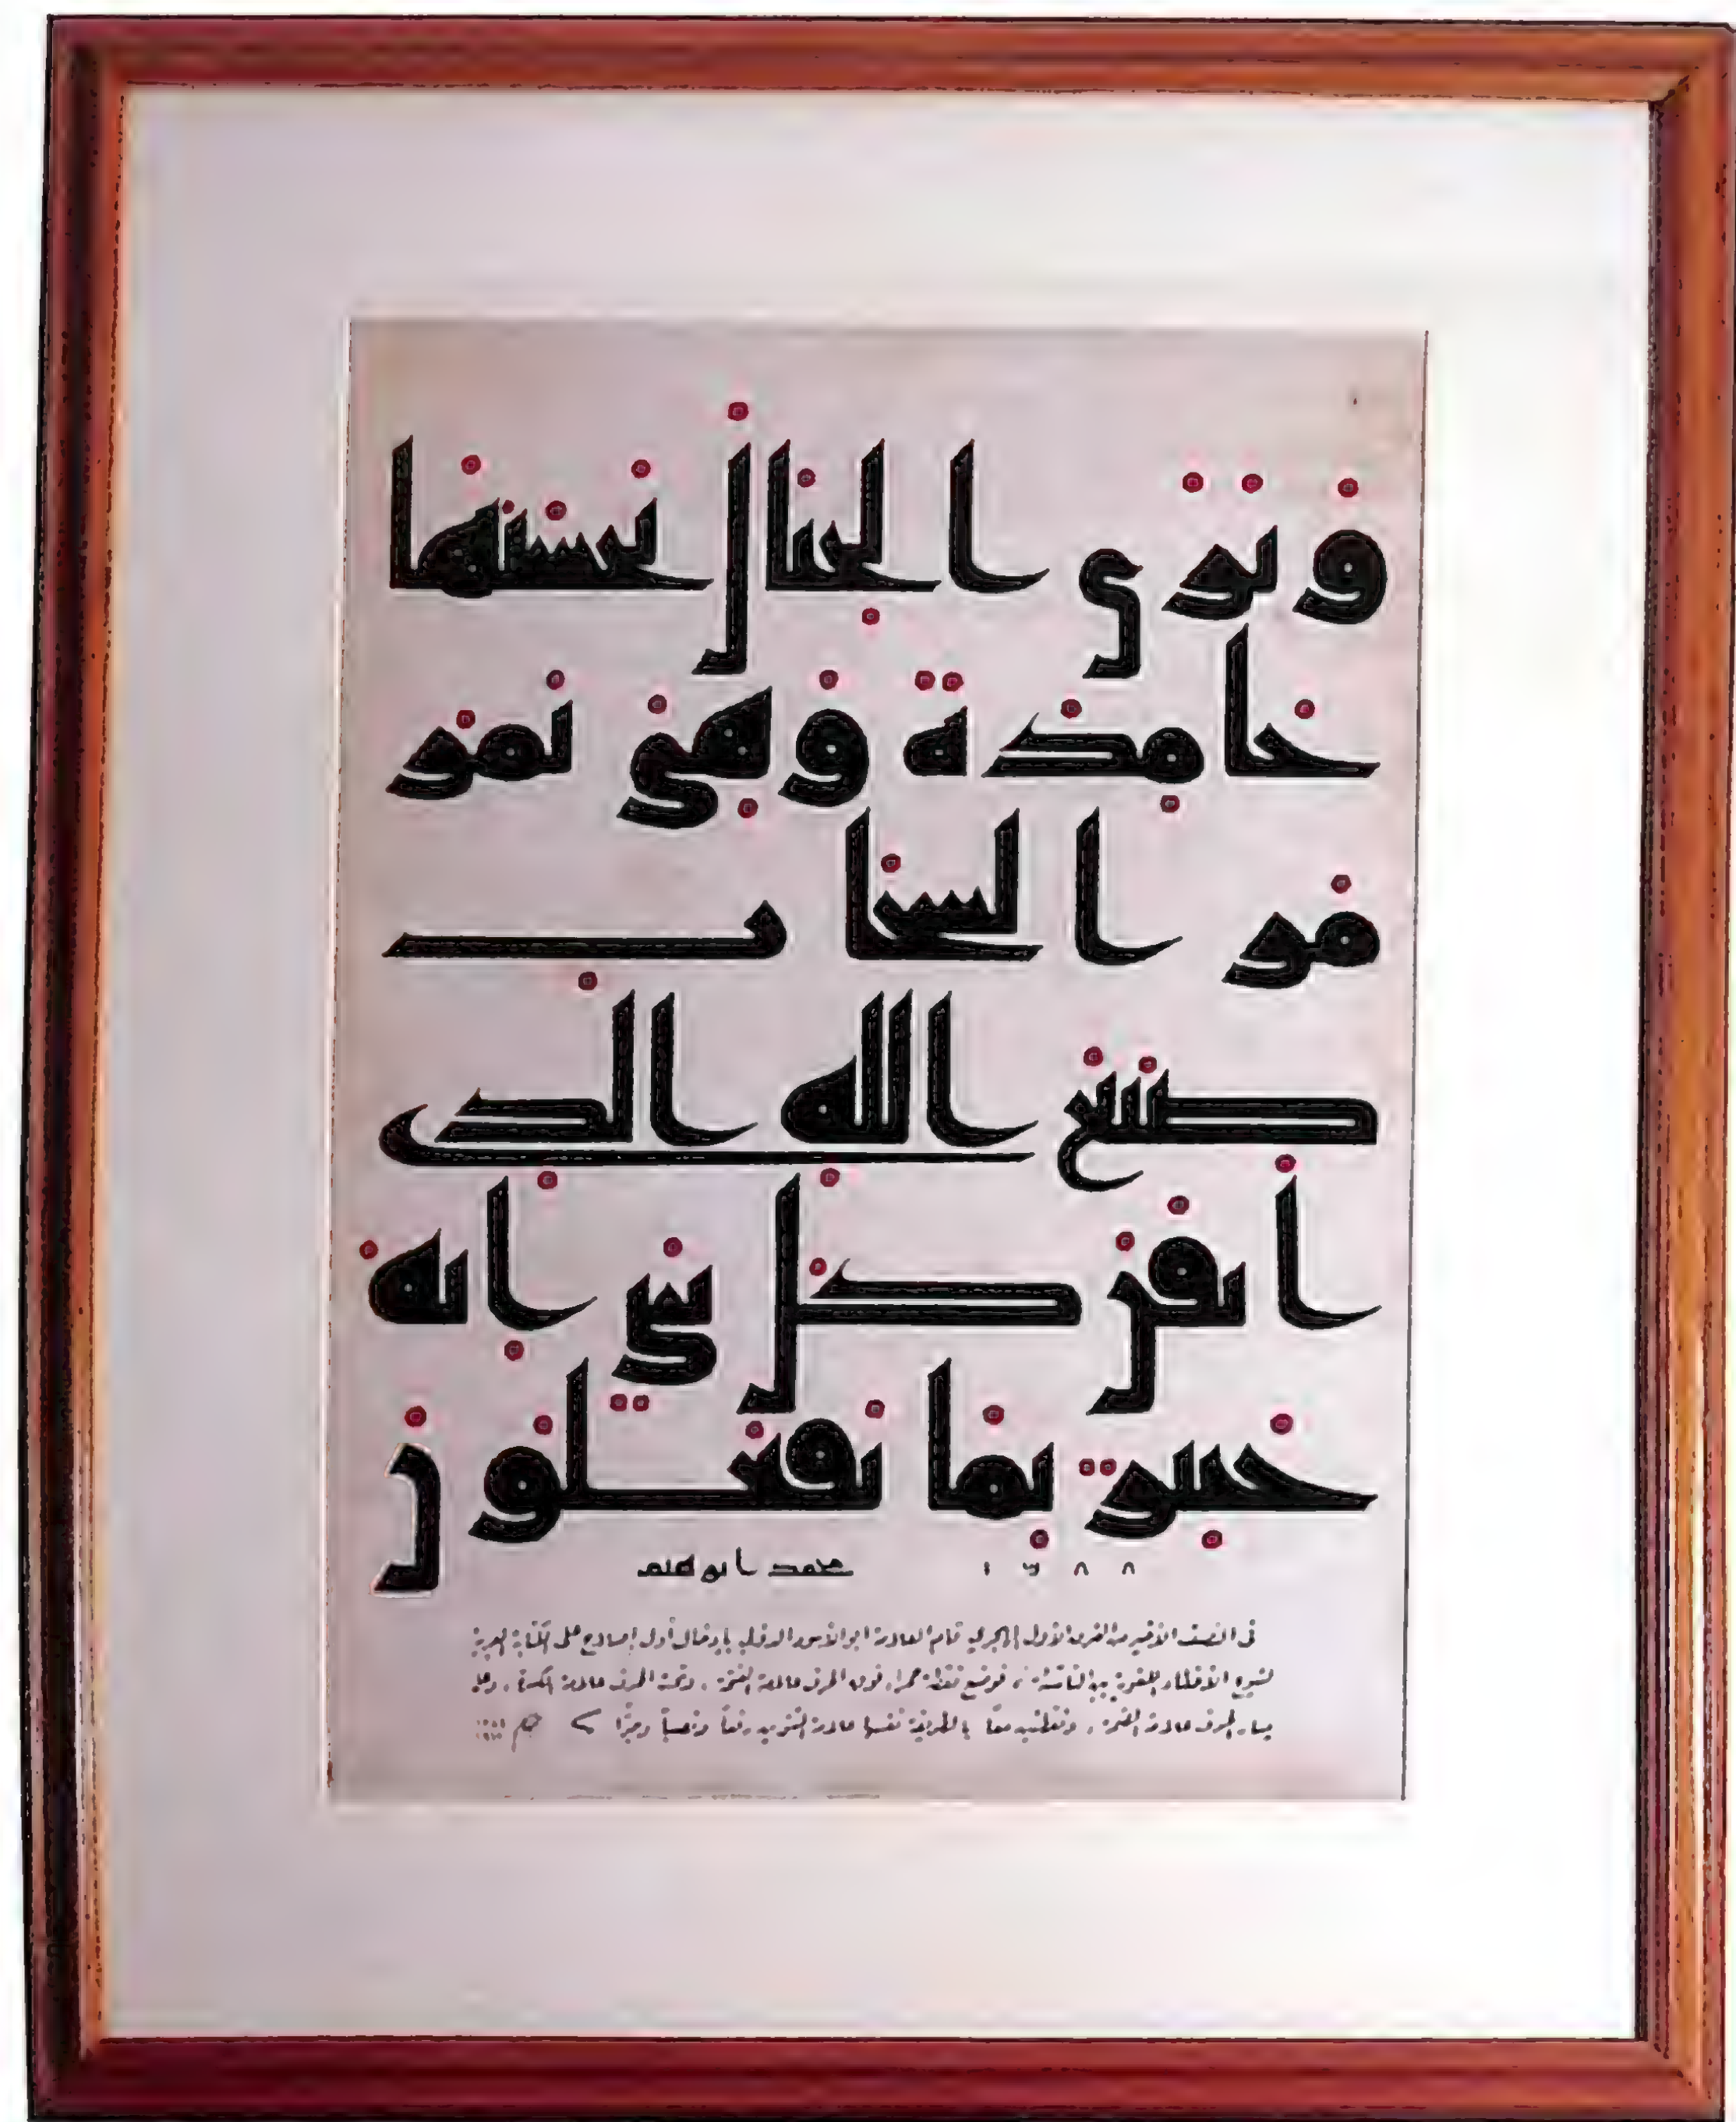 وترى الجبال تحسبها
جامدة وهي تمر
مر السحاب
صنع الله الذي
اتقن كل شي انه
خبير بما تفعلون
محمد ابرهيم ١٣٨٨
في النصف الأخير من القرن الأول الهجري قام العلامة ابو الأسود الدؤلي بإدخال أول إصلاح على الكتابة العربية
لشيوع الأخطاء اللغوية بين الناشئة، فوضع نقطة حمراء فوق الحرف علامة الفتحة، وتحت الحرف علامة الكسرة، وعلى
يسار الحرف علامة الضمة، ونقطتين معاً بالطريقة نفسها علامة التنوين رفعاً ونصباً وجراً